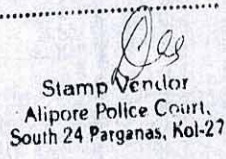 Stamp Vendor
Alipore Police Court,
South 24 Parganas, Kol-27